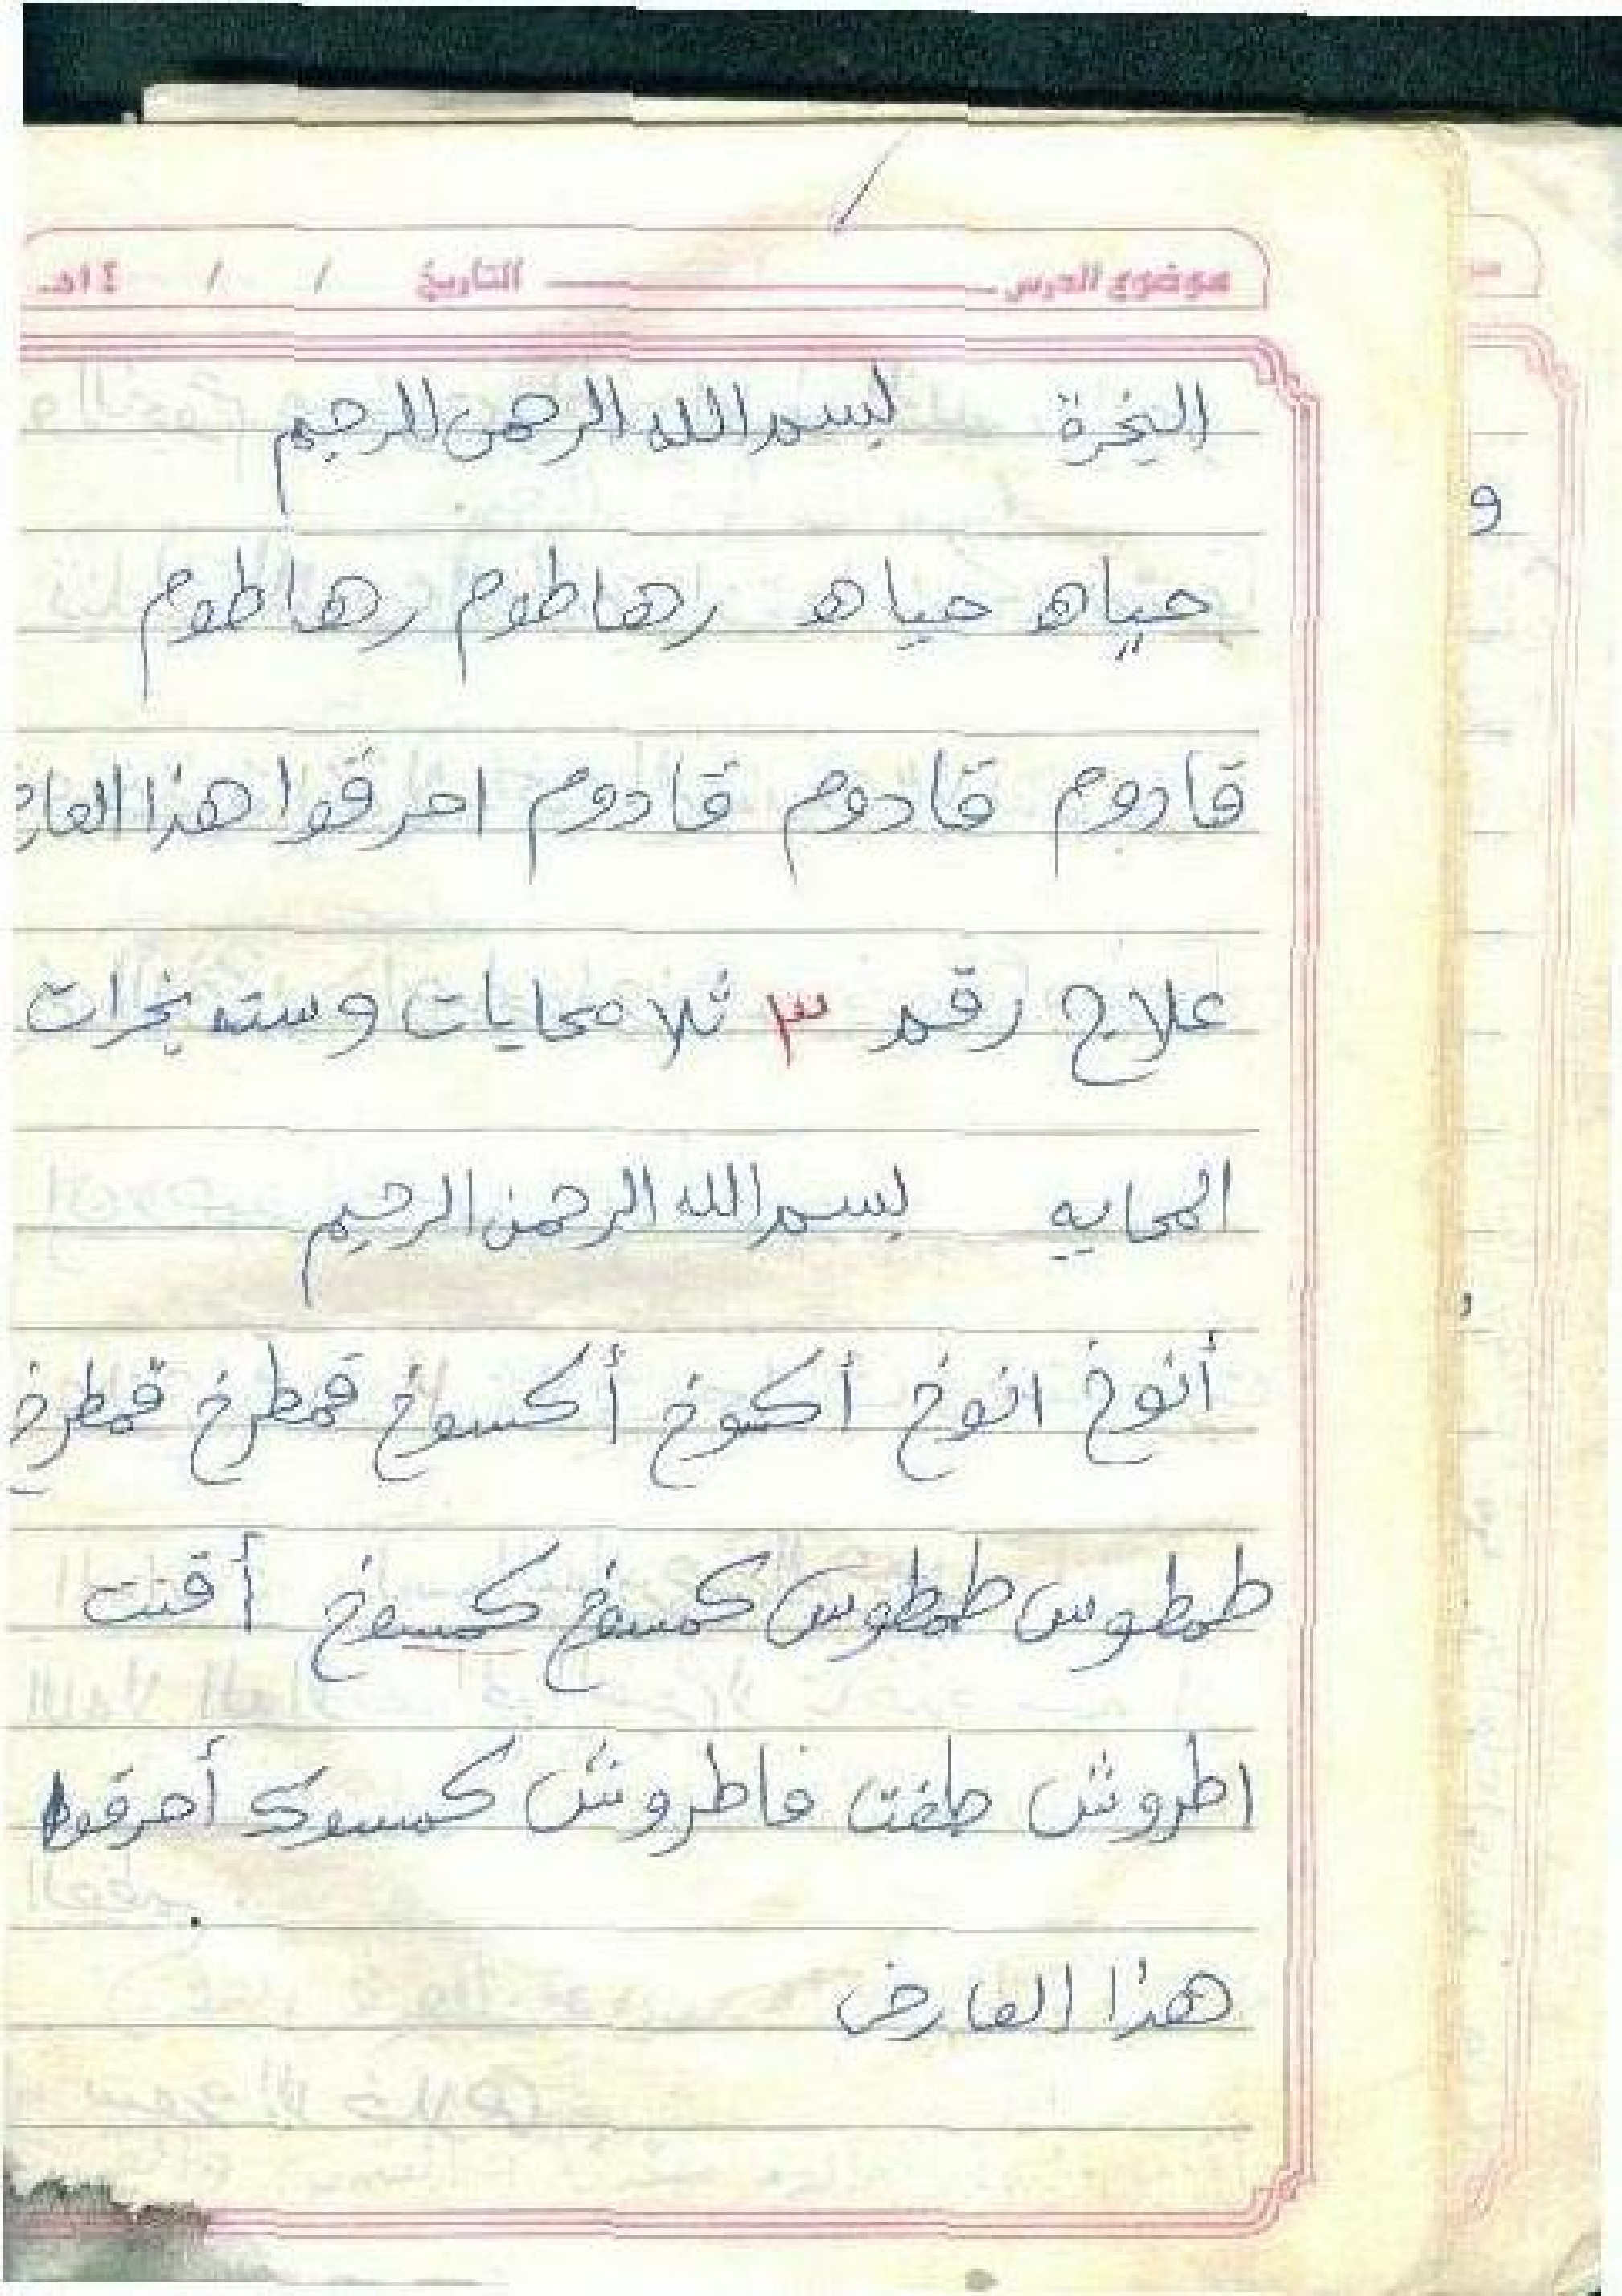 موضوع الدرس التاريخ / / ١٤هـ
البخرة بسم الله الرحمن الرحيم
و
حياه حياه رهاطوم رهاطوم
قادوم قادوم قادوم احرقوا هذا العار
علاج رقم ٣ ثلا محايات وسته بخرات
المحايه بسم الله الرحمن الرحيم
أنوخ انوخ أكسوخ أكسوخ قمطرخ قمطرخ
طمطوس طمطوس كمسوخ كمسوخ أقنت
اطروش طفت فاطروش كمسوك أحرقوا
هذا العارض